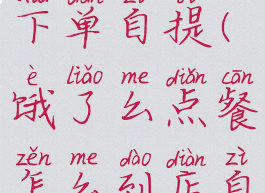 下单自提(
è liǎo me diǎn cān
饿了么点餐
zěn me dào diàn zì
怎么到店自